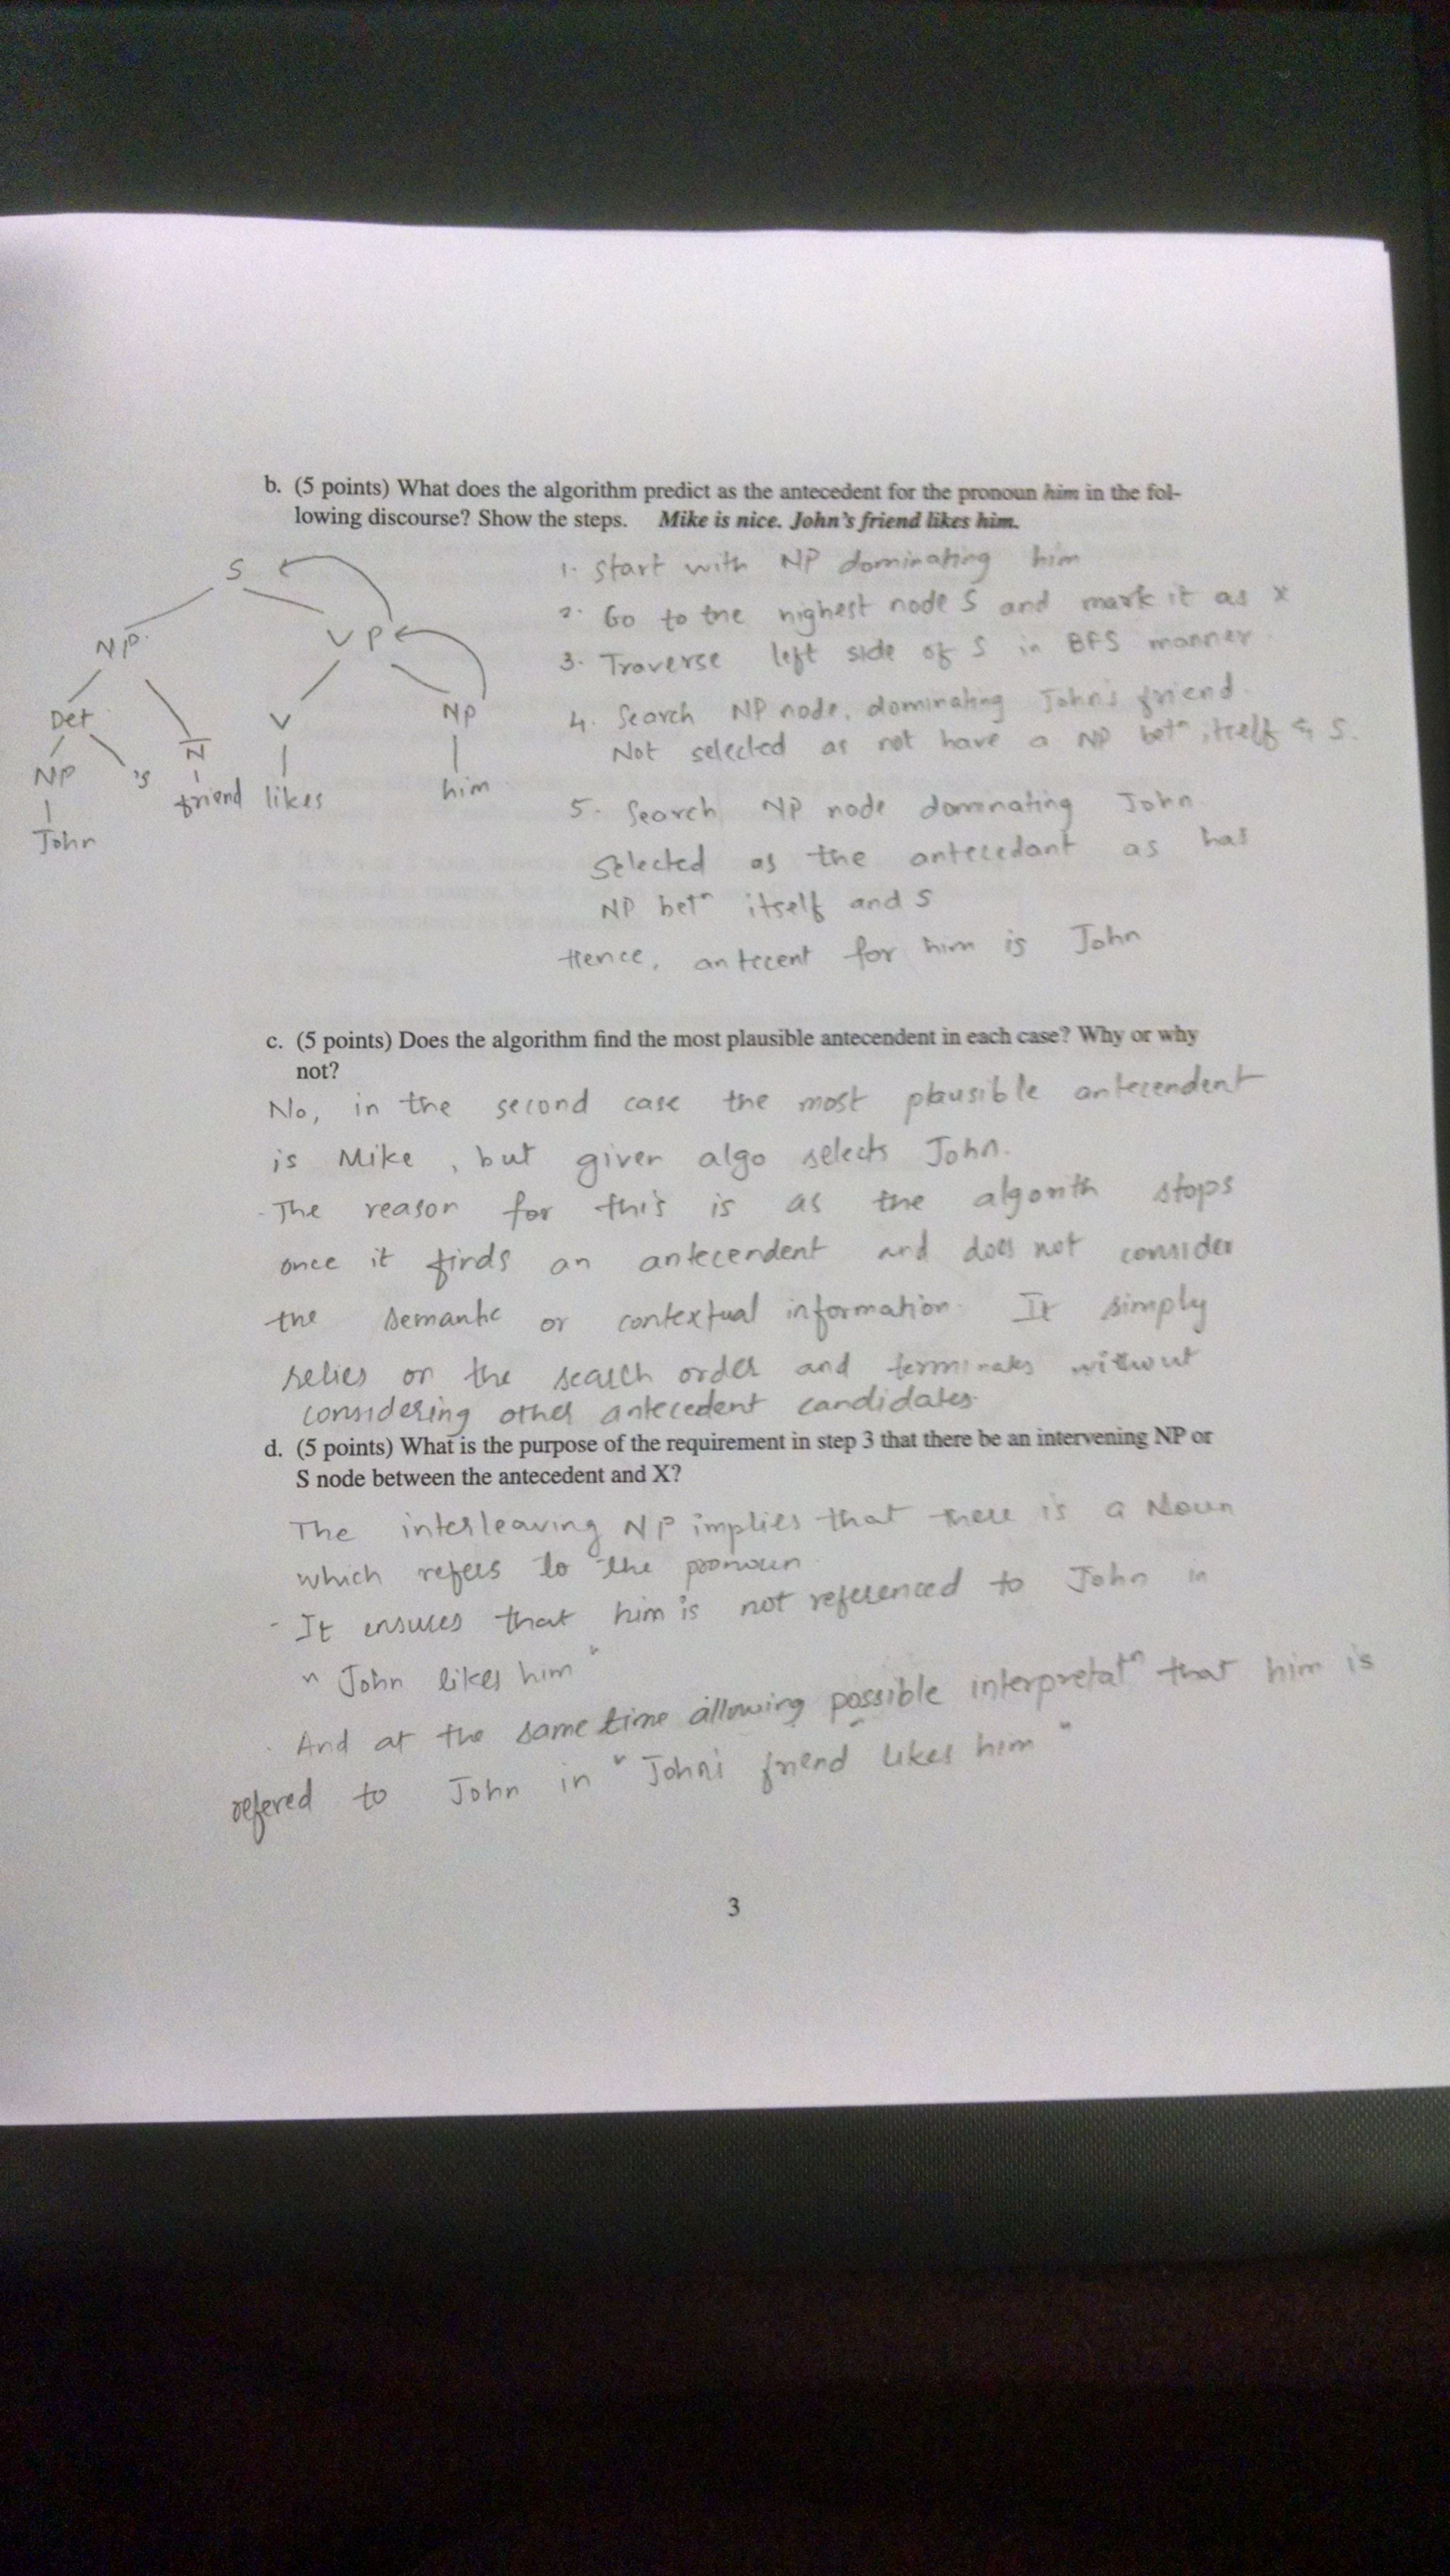 b. (5 points) What does the algorithm predict as the antecedent for the pronoun him in the fol-
lowing discourse? Show the steps. Mike is nice. John's friend likes him.
S
NP
VP
Det
N
V
NP
NP
's
friend
likes
him
John
1. Start with NP dominating him
2. Go to the highest node S and mark it as X
3. Traverse left side of S in BFS manner
4. Search NP node, dominating John's friend.
Not selected as not have a NP betn itself & S.
5. Search NP node dominating John.
Selected as the antecedant as has
NP betn itself and S
Hence, antecent for him is John
c. (5 points) Does the algorithm find the most plausible antecendent in each case? Why or why
not?
No, in the second case the most plausible antecendent
is Mike, but given algo selects John.
- The reason for this is as the algorith stops
once it finds an antecendent and does not consider
the semantic or contextual information. It simply
relies on the search order and terminates without
considering other antecedent candidates.
d. (5 points) What is the purpose of the requirement in step 3 that there be an intervening NP or
S node between the antecedent and X?
The interleaving NP implies that there is a Noun
which refers to the pronoun.
- It ensures that him is not referenced to John in
"John likes him"
. And at the same time allowing possible interpretatn that him is
refered to John in "John's friend likes him"
3